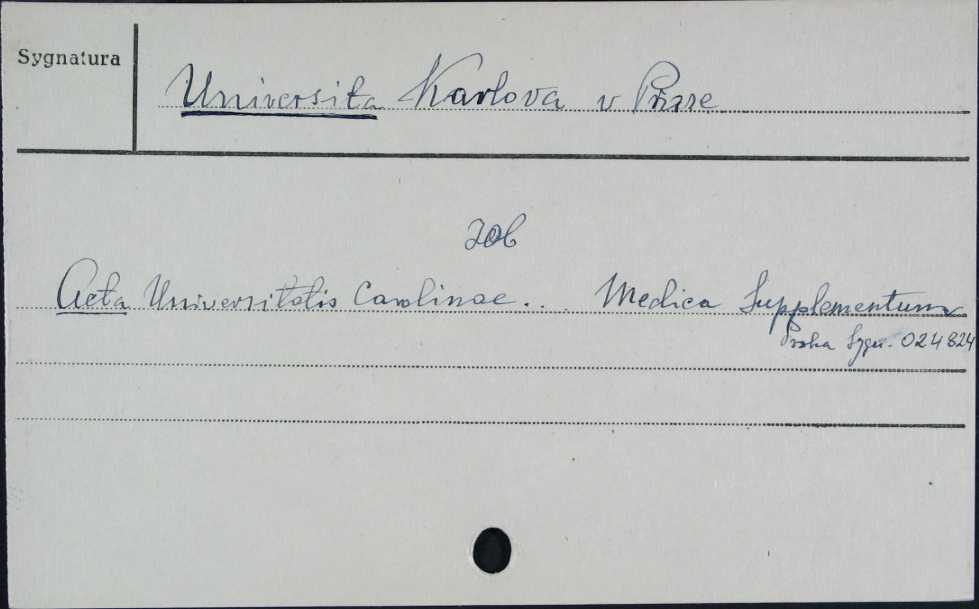 Sygnatura
Universita Karlova v Praze
zob
Acta Universitatis Carolinae... Medica Supplementum
Praha Sygn. 024824